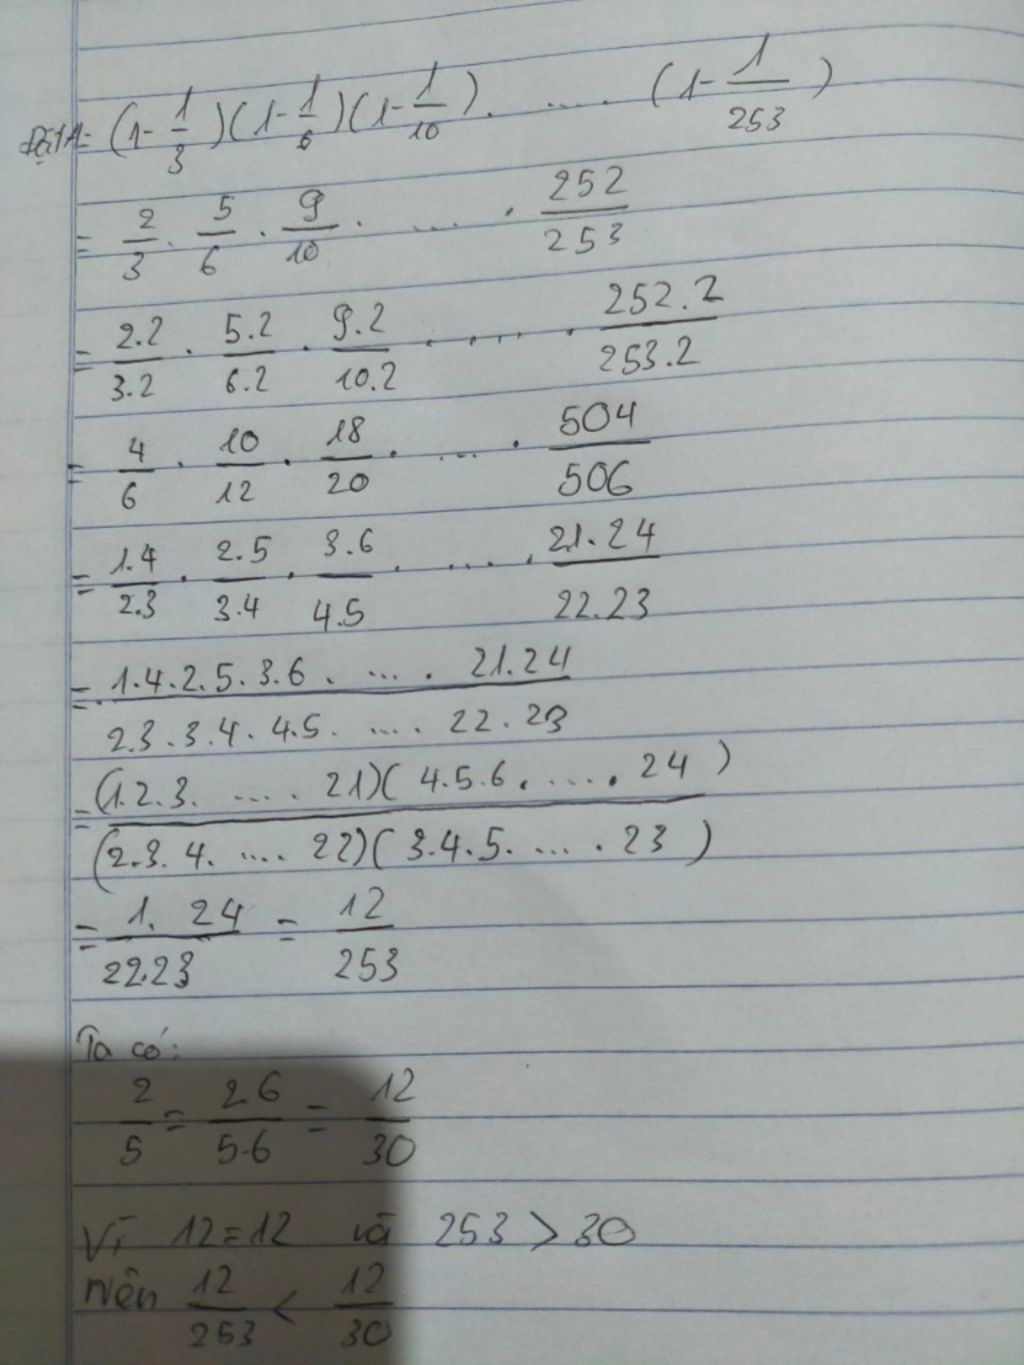 Đặt A = (1 - 1/3)(1 - 1/6)(1 - 1/10). .... (1 - 1/253)
= 2/3 . 5/6 . 9/10 . .... . 252/253
= 2.2/3.2 . 5.2/6.2 . 9.2/10.2 . .... . 252.2/253.2
= 4/6 . 10/12 . 18/20 . .... . 504/506
= 1.4/2.3 . 2.5/3.4 . 3.6/4.5 . .... . 21.24/22.23
= 1.4.2.5.3.6. .... . 21.24 / 2.3.3.4.4.5. .... . 22.23
= (1.2.3. .... . 21)(4.5.6. .... . 24) / (2.3.4. .... . 22)(3.4.5. .... . 23)
= 1.24/22.23 = 12/253
Ta có:
2/5 = 2.6/5.6 = 12/30
Vì 12=12 và 253 > 30
Nên 12/253 < 12/30